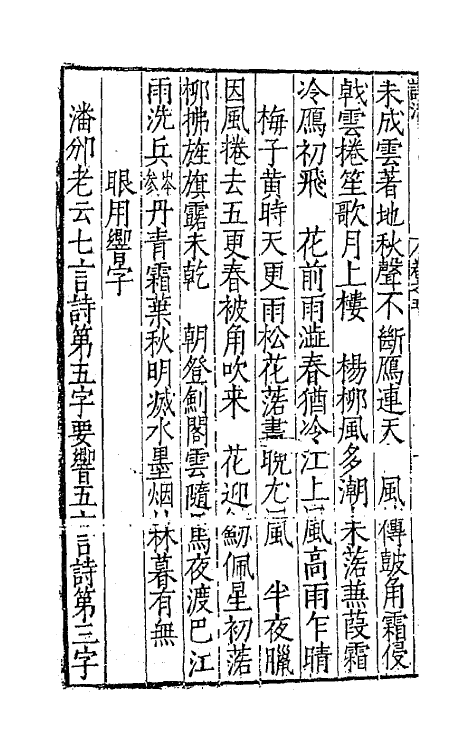 未成雲著地秋聲不斷鴈連天　風傳鼓角霜侵
戟雲捲笙歌月上樓　楊柳風多潮未落蒹葭霜
冷鴈初飛　花前雨澁春猶冷江上風高雨乍晴
梅子黃時天更雨松花落盡晚尤風　半夜臘
因風捲去五更春被角吹来　花迎劒佩星初落
柳拂旌旗露未乾　朝登劎閣雲隨馬夜渡巴江
雨洗兵岑參丹青霜葉秋明滅水墨烟林暮有無
眼用響字
潘邠老云七言詩第五字要響五言詩第三字